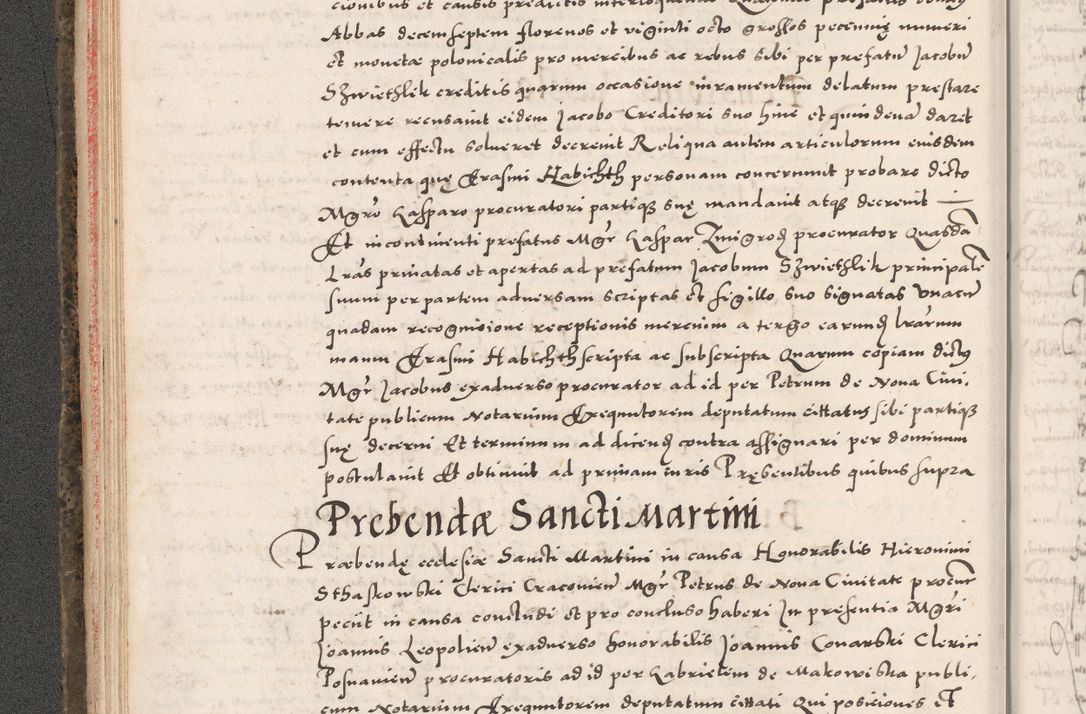 cionibus et causis predictis interloquendo
Abbas decemseptem florenos et viginti octo grossos pecunię numeri
et monetæ polonicalis pro mercibus ac rebus sibi per prefatū Jacobū
Szwiethlik creditis quarum occasione iuramentum delatum prestare
temere recusauit eidem Jacobo Creditori suo hinc et quindenā daret
et cum effectu solueret decreuit Reliqua autem articulorum eiusdem
contenta quę Erasmi Habichth personam concernunt probare dicto
Mgrō Kasparo procuratori partiqȝ suę mandauit atqȝ decreuit —
Et incontinenti prefatus Mgr̄ Kaspar Zmigroḍ procurator Quasdā
Lrās priuatas et apertas ad prefatum Jacobum Szwiethlik principale
suum per partem aduersam scriptas et sigillo suo signatas Vnacū
quadam recognicione receptionis mercium a tergo earunḍ lrārum
manu Erasmi Habichth scripta ac subscripta Quarum copiam dictus
Mgr̄ Jacobus exaduerso procurator ad id per Petrum de Noua Ciui,
tate publicum Notarium Exequutorem deputatum cittatus sibi partiqȝ
suę decerni Et terminum ad dicenḍ contra assignari per dominum
postulauit Et obtinuit ad primam iuris Pręsentibus quibus supra
Prebendæ Sancti Martini
Præbendę ecclesiæ Sancti Martini in causa Honorabilis Hieronimi
Sthaskowski Clerici Cracovieñ Mgr̄ Petrus de Noua Ciuitate procur̄
peciit in causa concludi et pro concluso haberi In presentia Mgr̄i
Joannis Leopolieñ exaduerso honorabilis Joannis Conarski Clerici
Posnanieñ procuratoris ad id per Gabrielem de Makowiska publi,
cum Notarium Exequutorem deputatum cittati Qui posiciones et